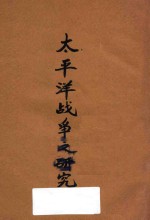 太平洋战争之研究